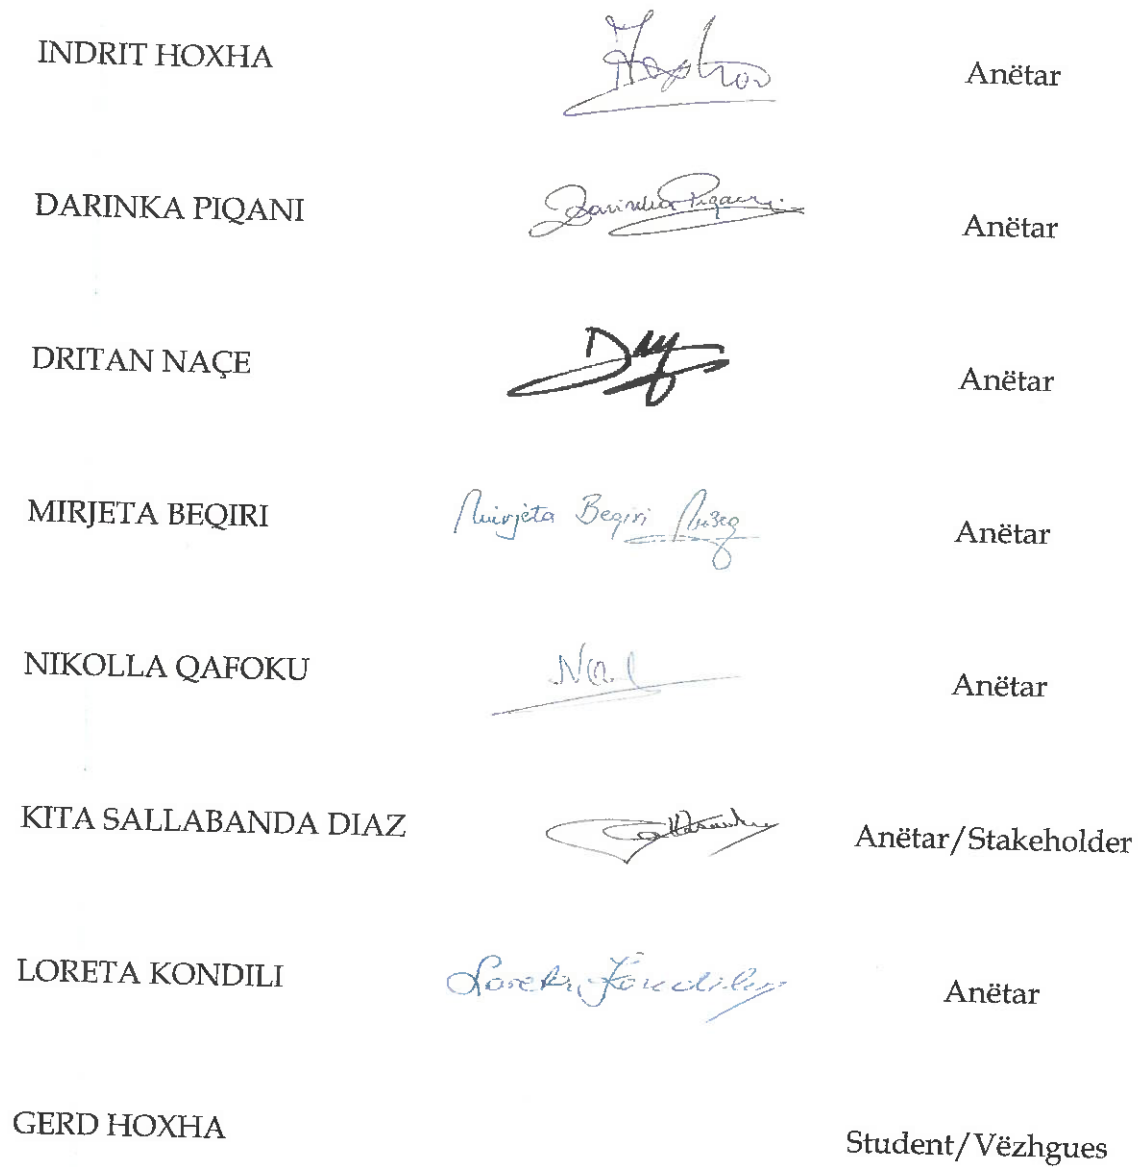 INDRIT HOXHA Hoxha Anëtar
DARINKA PIQANI Darinka Piqani Anëtar
DRITAN NAÇE Anëtar
MIRJETA BEQIRI Mirjeta Beqiri Anëtar
NIKOLLA QAFOKU Anëtar
KITA SALLABANDA DIAZ Anëtar/Stakeholder
LORETA KONDILI Loreta Kondili Anëtar
GERD HOXHA Student/Vëzhgues